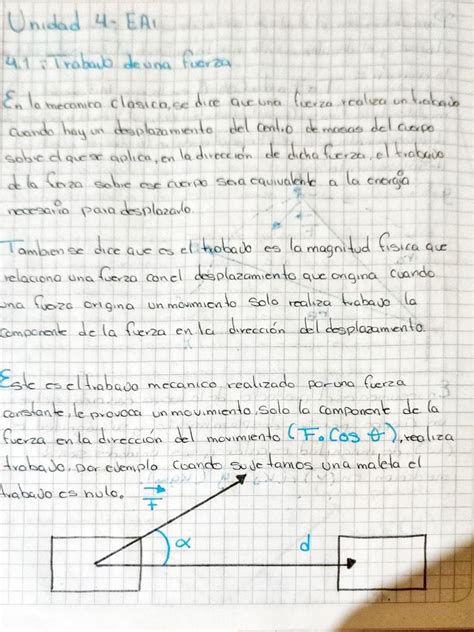 Unidad 4- EA1
4.1: Trabajo de una fuerza
En la mecanica clasica, se dice que una fuerza realiza un trabajo
cuando hay un desplazamiento del centro de masas del cuerpo
sobre el que se aplica, en la dirección de dicha fuerza, el trabajo
de la forza sobre ese cuerpo sera equivalente a la energia
necesaria para desplazarlo.
Tambien se dice que es el trabajo es la magnitud fisica que
relaciona una fuerza con el desplazamiento que origina cuando
una fuerza origina un movimiento solo realiza trabajo la
componente de la fuerza en la dirección del desplazamiento.
Este es el trabajo mecanico, realizado por una fuerza
constante, le provoca un movimiento, solo la componente de la
fuerza en la dirección del movimiento (F. Cos θ), realiza
trabajo. por ejemplo cuando sujetamos una maleta el
trabajo es nulo.
F
α
d